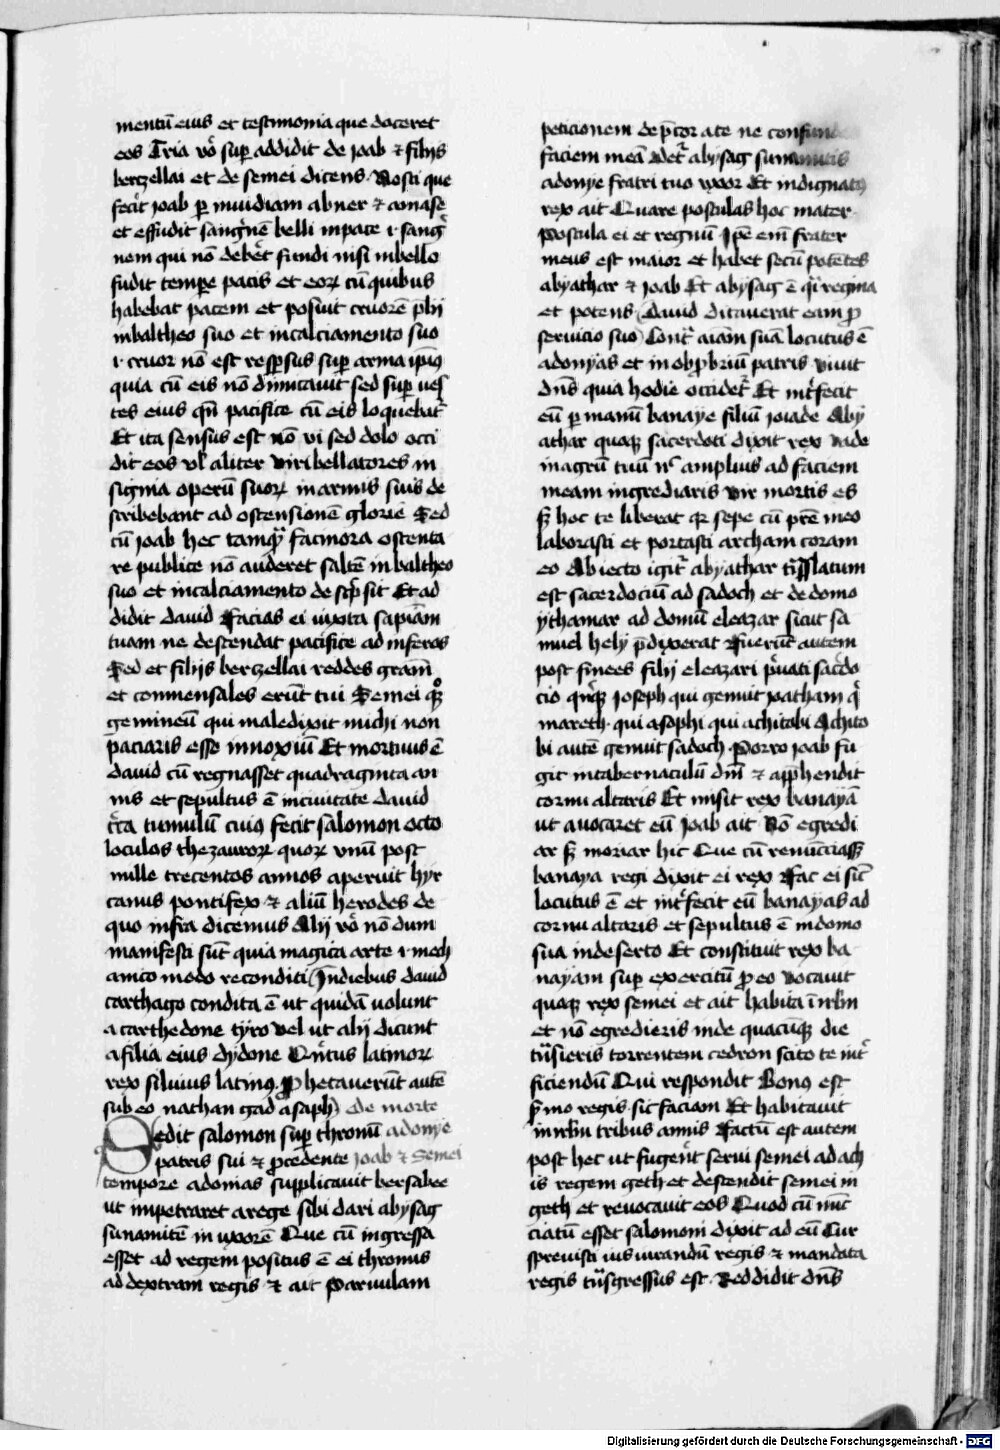 mentū eius et testimonia que doceret
eos Tria vo᷎ suꝑ addidit de ioab ⁊ filijs
berczellai et de semei dicens · Nosti que
fec̄it ioab ꝑ inuidiam abner ⁊ amase
et effudit sangⁱnē belli inpace ·i· sangᷓ
nem qui nō debēt fundi nisi inbello
fudit tempe pacis et eoꝝ cū quibus
habebat pacem et posuit cruorē plij
inbaltheo suo et incalciamento suo
·i· cruor nō est respsus suꝑ arma ipīꝰ
quia cū eis nō dimicauit sed suꝑ ves
tes eius qn̄ pacifice cū eis loquebat᷑
Et ita sensus est Nō vi sed dolo occi
dit eos vl᷑ aliter Viri bellatores in
signia operū suoꝝ inarmis suis de
scribebant ad ostensionē glorie Sed
cū ioab hec tamqᷓ facinora ostenta
re publice nō auderet saltē inbaltheo
suo et incalciamento descp̄sit Et ad
didit dauid Facias ei iuxta sapiām
tuam ne descendat pacifice ad inferos
Sed et filijs berczellai reddes grām̄
et conmensales erūt tui Semei qꝫ
gemineū qui maledixit michi non
paciaris esse innoxiū Et mortuus ē
dauid cū regnasset quadraginta an
nis et sepultus ē inciuitate dauid
cīta tumulū cuiꝰ fecit salomon octo
loculos thezauroꝝ quoꝝ vnū post
mille trecentos annos aperuit hyr
canus pontifex ⁊ aliū herodes de
quo infra dicemus Alij vo᷎ nō dum
manifesti sūt quia magica arte ·i· mech
anico modo reconditi Indiebus dauid
carthago condita ē ut quidā uolunt
a carthedone tyro vel ut alij dicunt
a filia eius dydone Qn̄tus latinoꝝ
rex siluius latinꝰ Prophetauerūt autē
sub eo nathan gad asaph De morte
Sedit salomon suꝑ thronū adonye
patris sui ⁊ ꝓcedente ioab ⁊ Semei
tempore adonias supplicauit bersabee
ut impetraret arege sibi dari abysag
sunamitē in uxorē Que cū ingressa
esset ad regem positus ē ei thronus
ad dextram regis ⁊ ait Paruulam
peticionem dep̄cor a te ne
faciem meā Det᷑ abysag
adonye fratri tuo uxor Et indignatꝰ
rex ait Quare postulas hoc mater
Postula ei et regnū Ipē enī frater
meus est maior et habet secū potētes
abyathar ⁊ ioab Et abysag ē qⁱ regina
et potens (dauid ditauerat eam ꝓ
seruicio suo) Cont᷑ aīam suā locutus ē
adonyas et in obp̄briū patris Viuit
dn̄s quia hodie occidet᷑ Et int᷑fecit
eū ꝑ manū banaye filiū ioiade Aby
athar quoqꝫ sacerdoti dixit rex Vade
inagrū tuū nᶜ amplius ad faciem
meam ingrediaris vir mortis es
sꝫ hoc te liberat qꝛ sepe cū prē meo
laborasti et portasti archam coram
eo Abiecto igit᷑ abyathar tⁿslatum
est sacerdociū ad sadoch et de domo
ythamar ad domū eleazar sicut sa
muel hely p̄dixerat Fuerūt autem
post finees filij eleazari pⁱuati sac̄do
cio
mareth · qui asophi qui achitobi Achito
bi autē genuit sadoch · Porro ioab fu
git intabernaculū dn̄i ⁊ app̄hendit
cornu altaris Et misit rex banayā
ut auocaret eū Ioab ait Nō egredi
ar sꝫ moriar hic Que cū renūciasset
banaya regi dixit ei rex Fac ei sic̄
locutus ē et int᷑fecit eū banayas ad
cornu altaris et sepultus ē indomo
sua indeserto Et constituit rex ba
nayam suꝑ exercitū ꝓ eo vocauit
quoqꝫ rex semei et ait habita in irlm
et nō egredieris inde quacūqꝫ die
tⁿsieris torrentem cedron scito te int᷑
ficiendū Qui respondit Bonꝰ est
sermo regis · sic faciam Et habitauit
inirlm tribus annis Factū est autem
post hec ut fugerīt serui semei ad ach
is regem geth et descendit semei in
geth et reuocauit eos Quod cū nūc
ciatū esset salomoni dixit ad eū Cur
spreuisti ius iurandū regis ⁊ mandata
regis tⁿsgressus est · Reddidit dn̄s
Digitalisierung gefördert durch die Deutsche Forschungsgemeinschaft - DFG